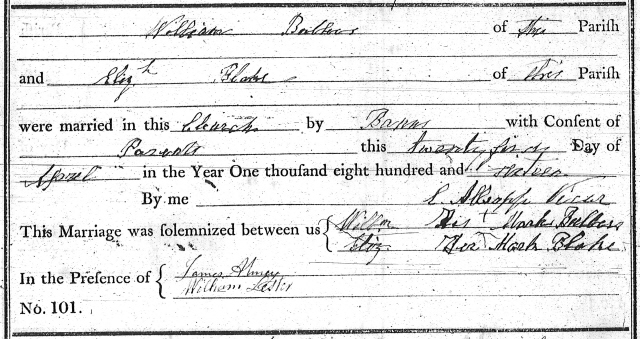 William Bulbers of this Parish
and Eliz.h Blake of this Parish
were married in this Church by Banns with Consent of
Parents this twenty first Day of
April in the Year One thousand eight hundred and sixteen
By me Vicar
This Marriage was solemnized between us { Willm His X Mark Bulbers
Eliz Her X Mark Blake
In the Presence of { James Almey
William Lester
No. 101.